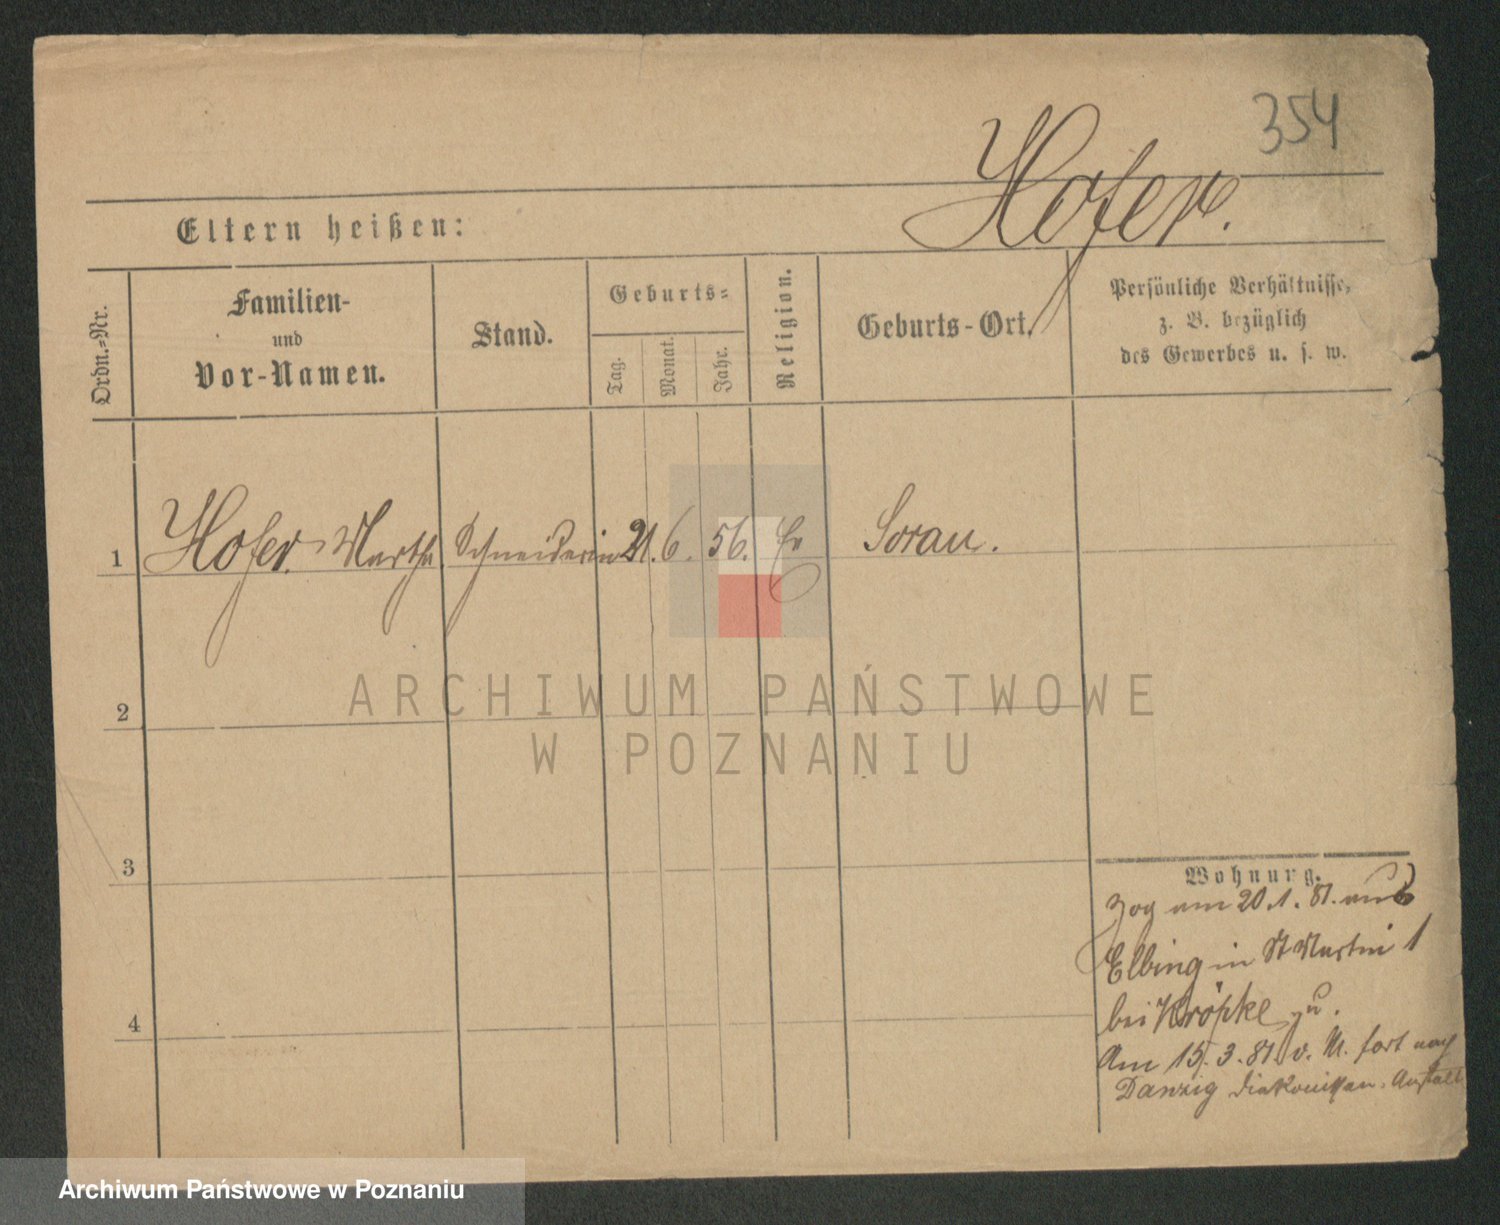 354
Hofer.
Eltern heißen:
Ordn.-Nr.
Familien-
und
Vor-Namen.
Stand.
Geburts-
Tag.
Monat.
Jahr.
Religion.
Geburts-Ort.
Persönliche Verhältnisse,
z. B. bezüglich
des Gewerbes u. s. w.
1 Hofer. Martha Schneiderin 21. 6. 56. Ev Sorau.
2
3
4
Wohnung.
zog am 20.1.81. aus
Elbing in St Martin 1
bei Kröpke zu.
Am 15.3.81. v. M. fort nach
Danzig Diakonissen-Anstalt
ARCHIWUM PAŃSTWOWE
W POZNANIU
Archiwum Państwowe w Poznaniu